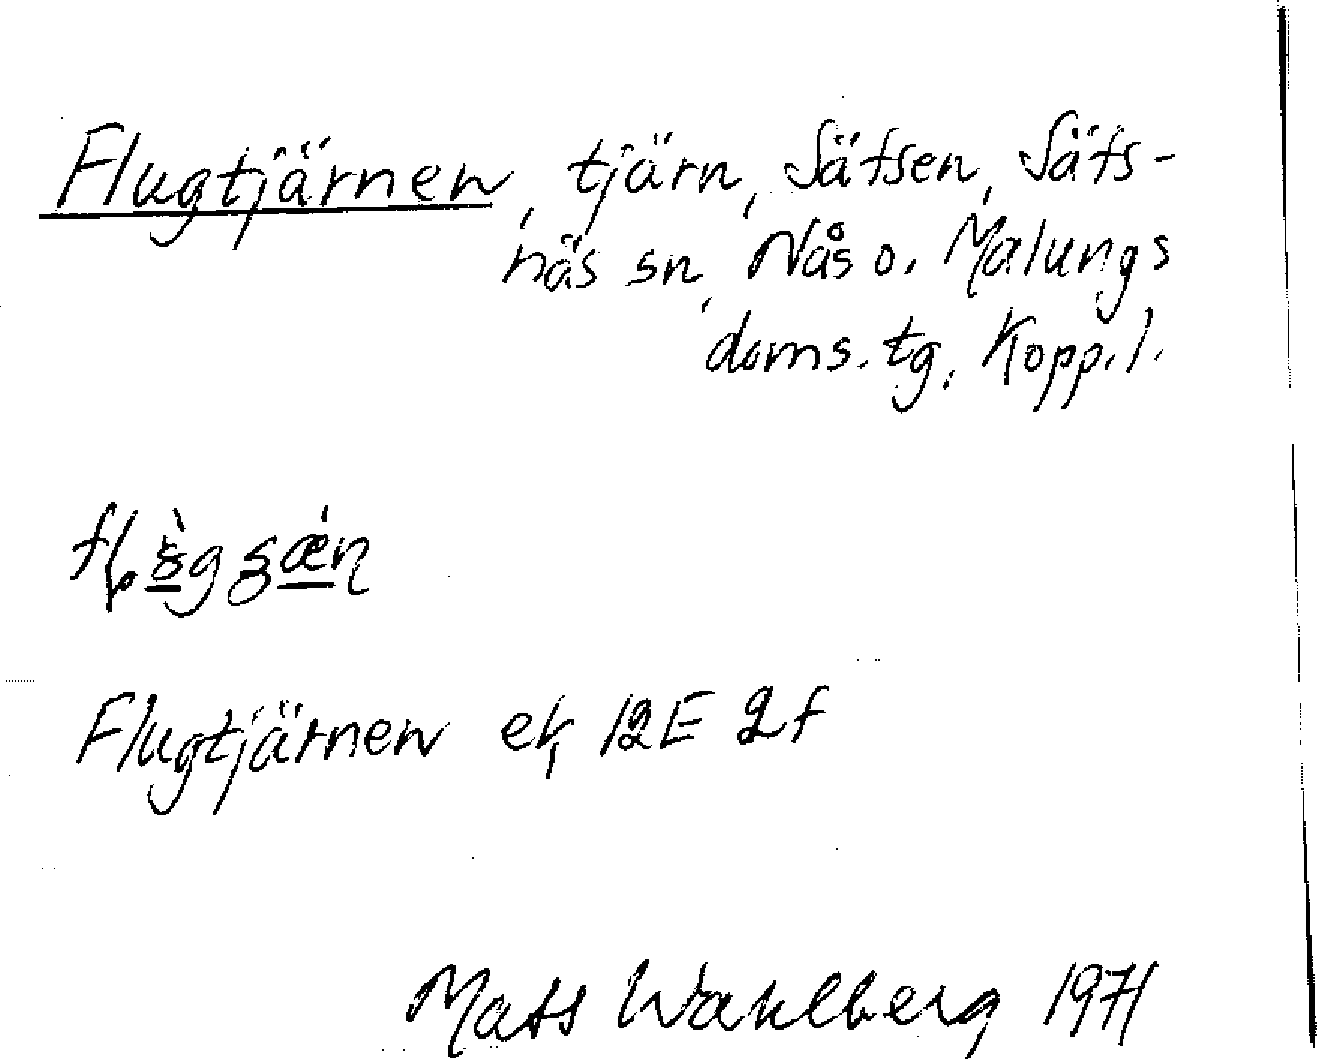 Flugtjärnen, tjärn, Sätsen, Säfs-
näs sn, Nås o. Malungs
doms. tg. Kopp. l.
Flugtjärnen ek, 12E 2f
Mats Wahlberg 1971